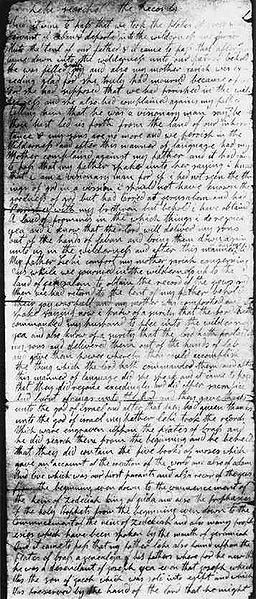 Lehi searcheth the Records
came to pass that we took the plates of
servant of Laban & departed into the wilderness &
unto the tent of our father & it came to pass that after
came down into the wilderness unto our father behold
he was filled & also my mother
glad for she truly had mourned because of
for she had supposed that we had perished in the wil
derness and she also had complained against my father
telling him that he was a visionary man saying
thou hast led us forth from the land of our inher
tance & my sons are no more and we perish in the
wilderness and after this manner of language had my
mother complained against my father and it had
to pass that my father spake unto her saying I know
that I am a visionary man for if I had not seen the th
ings of god in a vision I should not have known the
goodness of god but had tarried at jerusalem and had
perished with my brethren but behold I have obtain
a land of promise in the which things I do rejoice
yea and I know that the lord will deliver my sons
out of the hands of laban and bring them down again
unto us in the wilderness and after this manner
my father lehi comfort my mother sariah concerning
us while we journied in the wilderness up to the
land of jerusalem to obtain the record of the jews
when we had returned to the tent of my father behold
their joy was full and my mother was comforted
spake saying now I know of a surety that the lord hath
commanded my husband to flee into the wilderness
yea and also know of a surety that the lord hath
my sons and delivered them out of the hands of
and gave them power whereby they could accomplish
the thing which the lord hath commanded them and after
this manner of language did she speak and it came to
that they did rejoice exceedingly & did offer
and burnt offerings unto the lord & they gave thanks
unto the god of israel and after that they had given thanks
unto the god of israel my father lehi took the records
which were engraven upon the plates of brass and
he did search them from the beginning and he beheld
that they did contain the five books of moses which
gave an account of the creation of the world and also of adam
and eve which was our first parents and also a record of the jews
from the beginning even down to the commencement of
the reign of zedekiah king of judah and also the prophecies
of the holy prophets from the beginning even down to the
commencement of the reign of zedekiah and also many proph
ecies which have been spoken by the mouth of jeremiah
and it came to pass that my father lehi also found upon the
plates of brass a genealogy of his father wherefore he knew that
he was a descendant of joseph yea even that joseph which
was the son of jacob which was sold into egypt and which
was preserved by the hand of the lord that he might